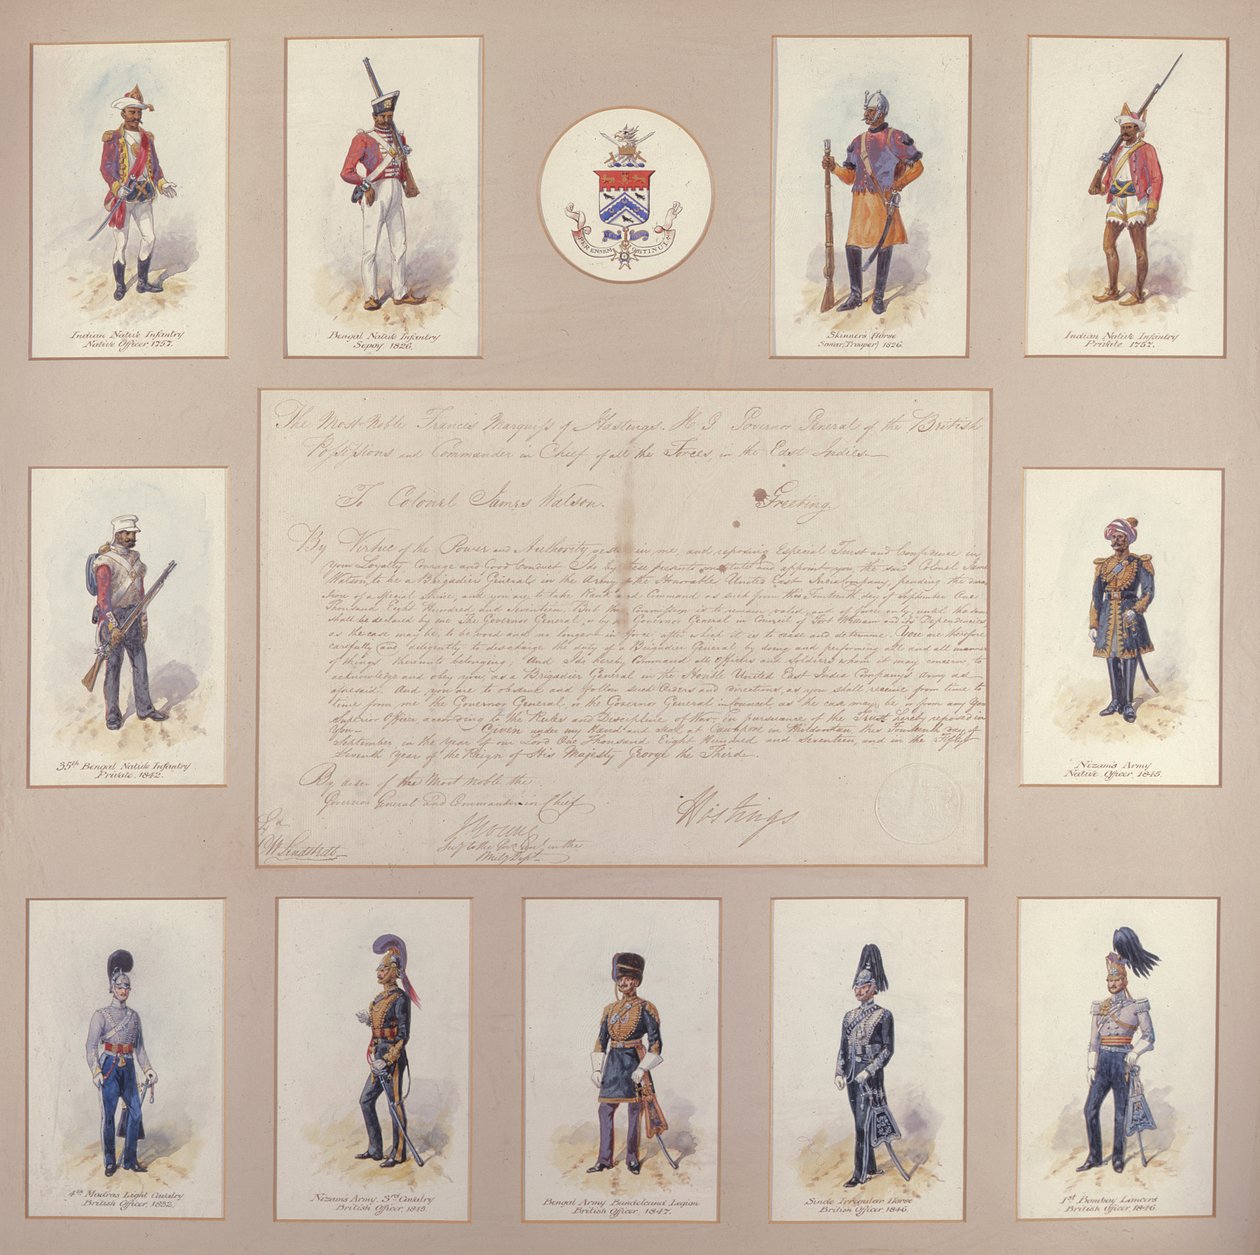 Indian Native Infantry
Native Officer, 1757.
Bengal Native Infantry
Sepoy. 1826.
PER ENSEM
Skinners Horse
Sowar, (Trooper) 1826.
Indian Native Infantry
Private. 1757.
The Most Noble Francis Marquess of Hastings. K G Governor General of the British
Possessions and Commander in Chief of all the Forces in the East Indies
To Colonel James Watson. Greeting.
By Virtue of the Power and Authority vested in me, and reposing Especial Trust and Confidence in
your Loyalty, Courage and Good Conduct. I do by these presents constitute and appoint you the said Colonel James
Watson, to be a Brigadier General in the Army of the Honorable United East India Company, pending the dura
tion of a special service, and you are to take Rank and Command as such from this Fourteenth day of September One
Thousand Eight Hundred and Seventeen. But this Commission is to remain valid and of force only, until the same
shall be declared by the Governor General, or by a Governor General in Council of Fort William and its Dependencies
as the case may be, to be void and no longer in force after which it is to cease and determine. You are therefore
carefully and diligently to discharge the duty of a Brigadier General by doing and performing all and all manner
of things thereunto belonging; And I do hereby Command all Officers and Soldiers whom it may concern to
acknowledge and obey you, as a Brigadier General in the Honble United East India Company's Army as
aforesaid. And you are to observe and follow such Orders and directions, as you shall receive from time to
time from me the Governor General, or the Governor General in Council, as the case may be, or from any your
Superior Officer according to the Rules and Discipline of War, in pursuance of the Trust hereby reposed in
You— Given under my Hand and Seal at Cawnpore in Hindostan this Fourteenth day of
September in the Year of our Lord One Thousand Eight Hundred and Seventeen, and in the Fifty
Seventh Year of the Reign of His Majesty George the Third
By order of the Most Noble the
Governor General and Commander in Chief
Hastings
J Young
Secy to the Govt Genl in the
Mily Dept
35th Bengal Native Infantry
Private. 1842.
Nizam's Army
Native Officer, 1845.
4th Madras Light Cavalry
British Officer, 1832.
Nizam's Army. 3rd Cavalry
British Officer, 1845.
Bengal Army Bundelcund Legion
British Officer. 1847.
Sinde Irregular Horse
British Officer 1846.
1st Bombay Lancers
British Officer, 1846.